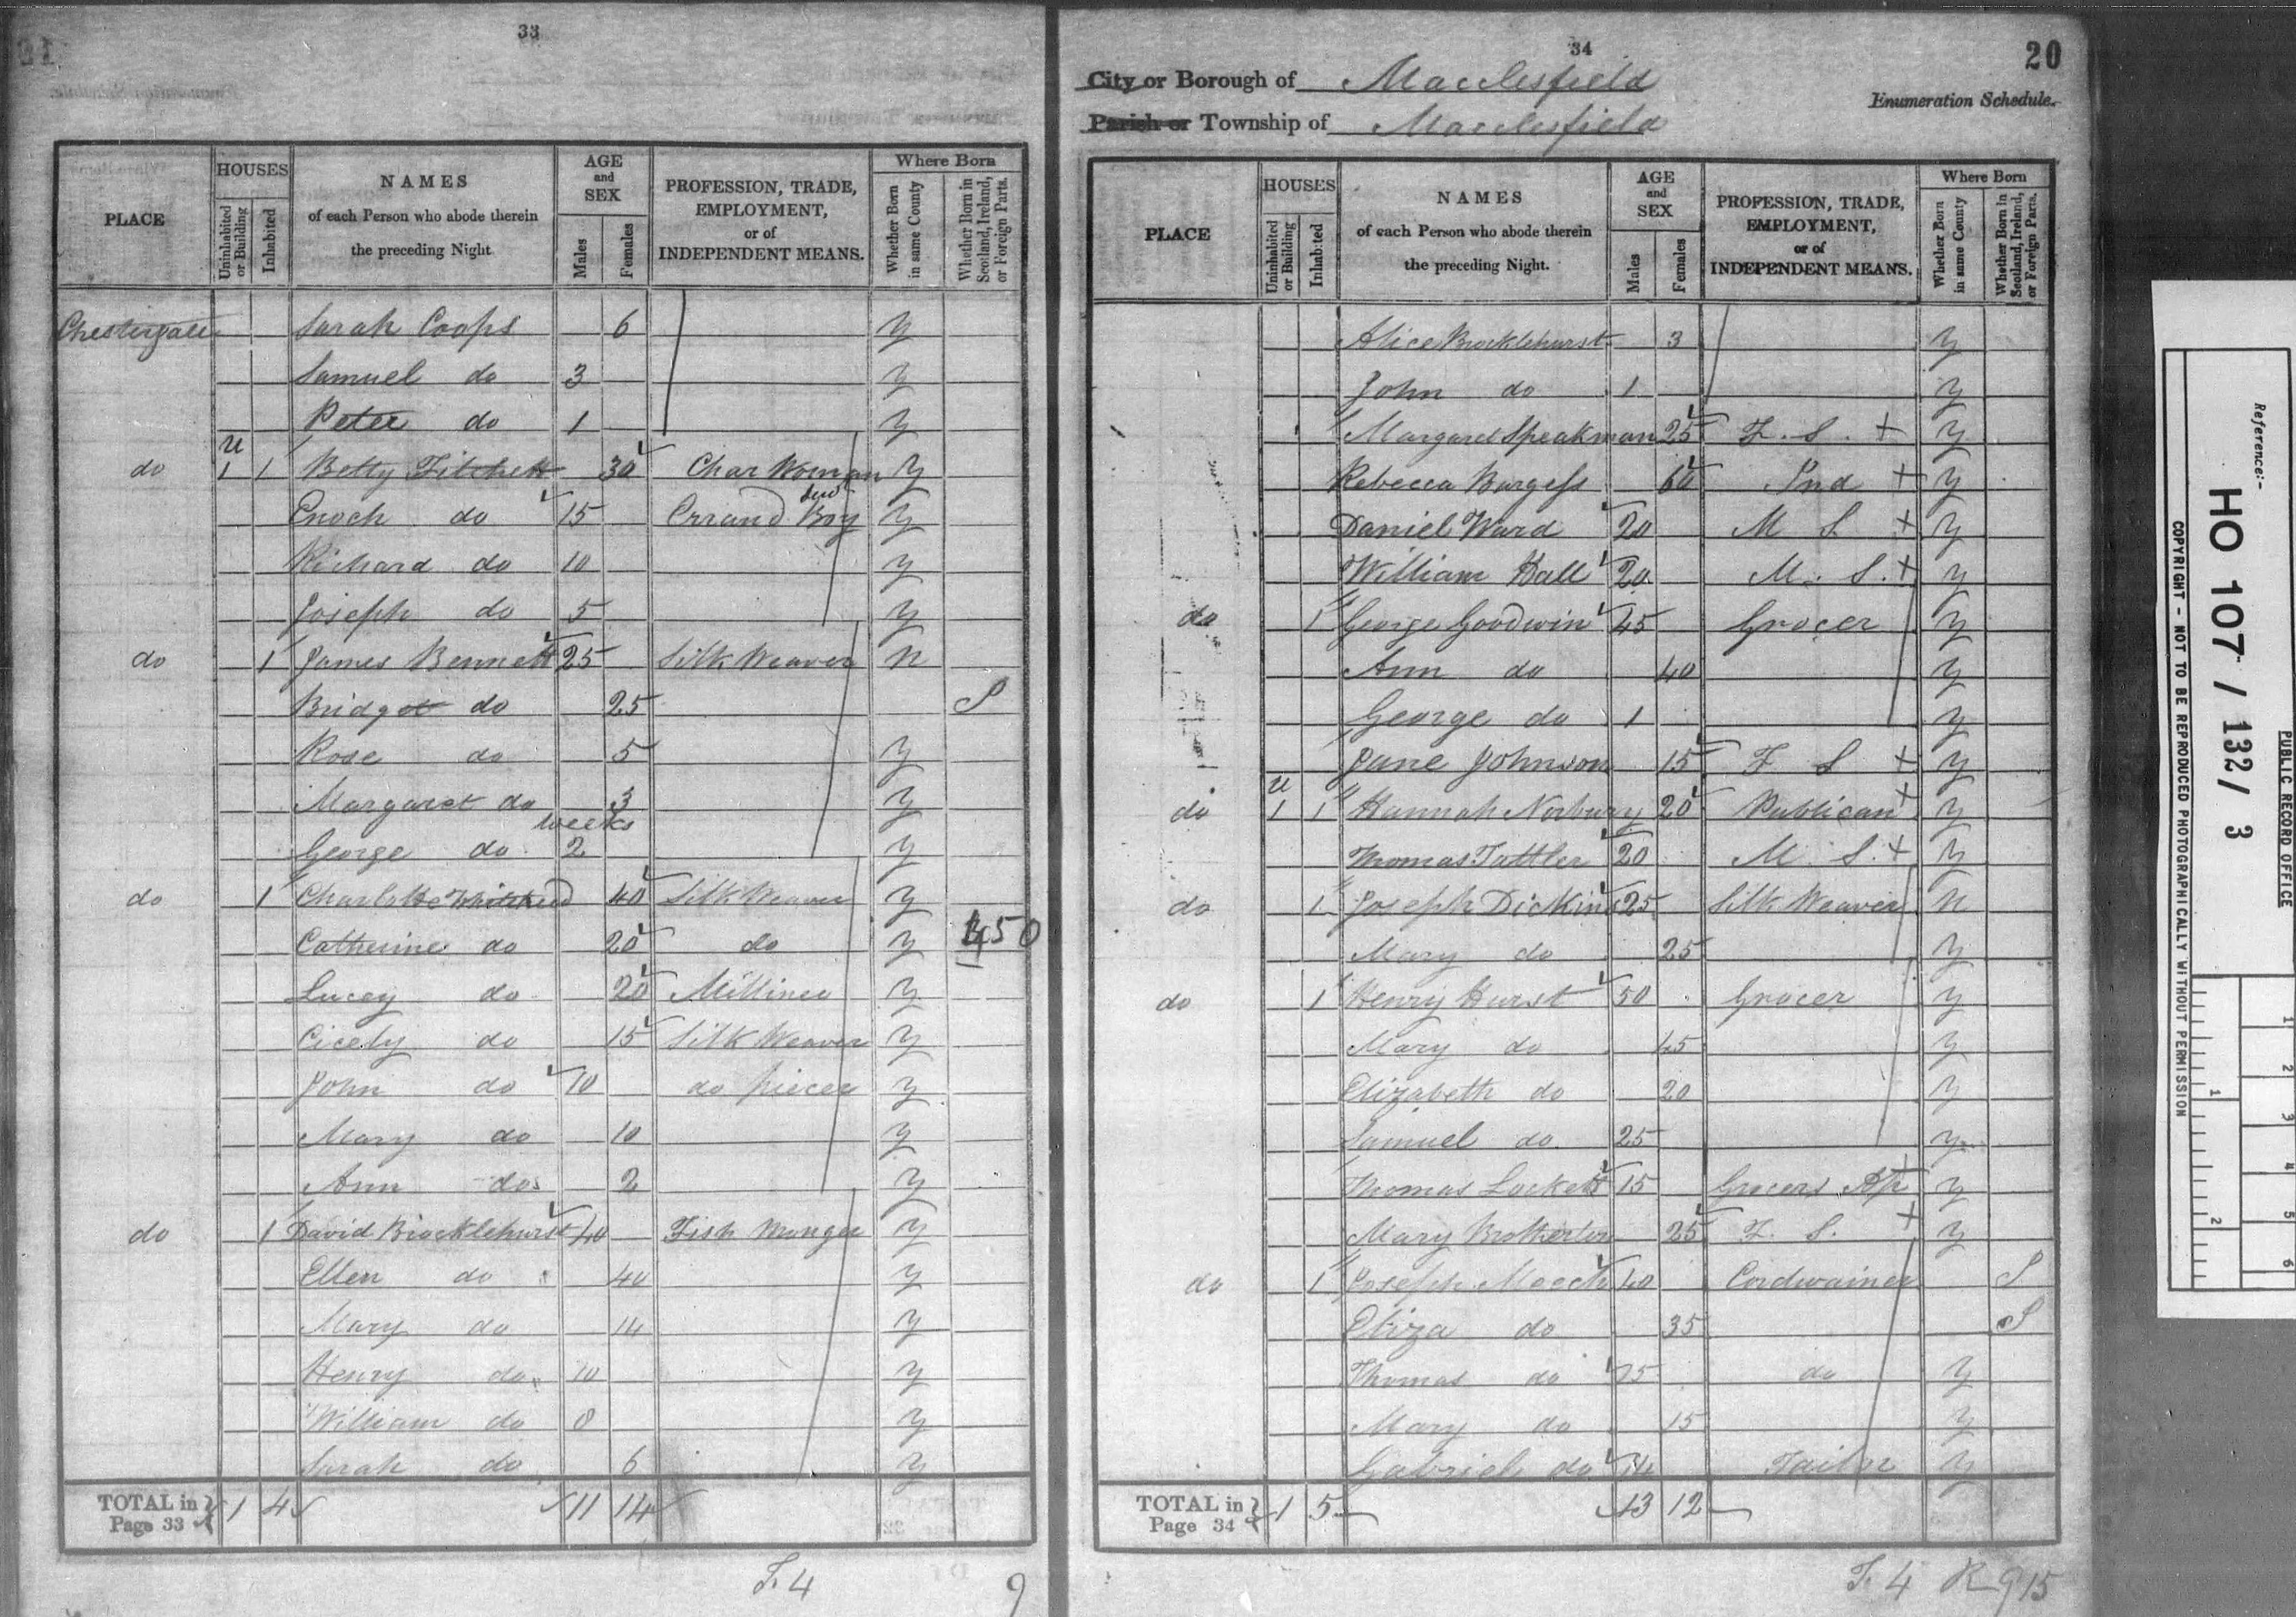 33
PLACE
HOUSES
Uninhabited or Building
Inhabited
NAMES
of each Person who abode therein
the preceding Night.
AGE and SEX
Males
Females
PROFESSION, TRADE, EMPLOYMENT, or of INDEPENDENT MEANS.
Where Born
Whether Born in same County
Whether Born in Scotland, Ireland, or Foreign Parts.
Chestergate Sarah Coops 6 y
Samuel do 3 y
Peter do 1 y
u
do 1 1 Betty Fitchett 30 Char Woman y
Enoch do 15 Errand Boy y
Richard do 10 y
Joseph do 5 y
do 1 James Bennett 25 Silk Weaver n
Bridget do 25 S
Rose do 5 y
Margaret do 3 y
weeks
George do 2 y
do 1 Charlotte 40 Silk Weaver y
Catherine do 20 do y 450
Lucey do 20 Milliner y
Cicely do 15 Silk Weaver y
John do 10 do piecer y
Mary do 10 y
Ann do 2 y
do 1 David Brocklehurst 40 Fish Monger y
Ellen do 40 y
Mary do 14 y
Henry do 10 y
William do 8 y
Sarah do 6 y
TOTAL in Page 33 1 4 11 14
F. 4
9
34
20
City or Borough of Macclesfield
Enumeration Schedule.
Parish or Township of Macclesfield
PLACE
HOUSES
Uninhabited or Building
Inhabited
NAMES
of each Person who abode therein
the preceding Night.
AGE and SEX
Males
Females
PROFESSION, TRADE, EMPLOYMENT, or of INDEPENDENT MEANS.
Where Born
Whether Born in same County
Whether Born in Scotland, Ireland, or Foreign Parts.
Alice Brocklehurst 3 y
John do 1 y
Margaret Speakman 25 F. S. + y
Rebecca Burgess 60 Ind + y
Daniel Ward 20 M S + y
William Hall 20 M. S. + y
do 1 George Goodwin 45 Grocer y
Ann do 40 y
George do 1 y
Jane Johnson 15 F S + y
u
do 1 1 Hannah Norbury 20 Publican + y
Thomas Tattler 20 M S. + y
do 1 Joseph Dickins 25 Silk Weaver n
Mary do 25 y
do 1 Henry Hurst 50 Grocer y
Mary do 45 y
Elizabeth do 20 y
Samuel do 25 y
Thomas Lockett 15 Grocers Ap + y
Mary Brotherton 25 F. S. + y
do 1 Joseph 40 Cordwainer S
Eliza do 35 S
Thomas do 15 do y
Mary do 15 y
Gabriel do 14 Tailor y
TOTAL in Page 34 1 5 13 12
F. 4 R 9 15
PUBLIC RECORD OFFICE
Reference:-
HO 107 / 132/ 3
COPYRIGHT - NOT TO BE REPRODUCED PHOTOGRAPHICALLY WITHOUT PERMISSION
1 2
1 2 3 4 5 6